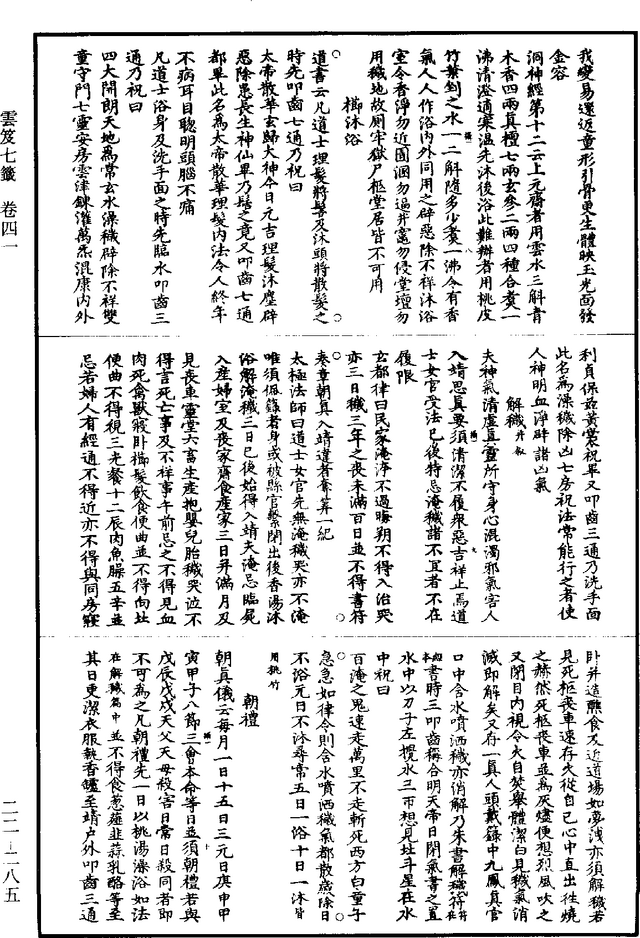 我變易還返童形引骨更生體映玉光面發
金容
洞神經第十二云上元齋者用雲水三斛青
木香四兩真檀七兩玄參二兩四種合煑一
沸清澄適寒溫先沐後浴此難辦者用桃皮
竹葉剉之水一二斛隨多少煑一沸令有香
氣人人作浴內外同用之辟惡除不祥沐浴
室令香淨勿近圊溷勿逼井竈勿侵堂壇勿
用穢地故厠牢獄尸柩堂居皆不可用
櫛沐浴
道書云凡道士理髮將髻及沐頭將散髮之
時先叩齒七通乃祝曰
太帝散華玄歸大神今日元吉理髮沐塵辟
惡除患長生神仙畢乃髻之竟又叩齒七通
都畢此名為太帝散華理髮內法令人終年
不病耳目聰明頭腦不痛
凡道士浴身及洗手面之時先臨水叩齒三
通乃祝曰
四大開朗天地為常玄水澡穢辟除不祥雙
童守門七靈安房雲津鍊灌萬炁混康內外
利貞保茲黃裳祝畢又叩齒三通乃洗手面
此名為澡穢除凶七房祝法常能行之者使
人神明血淨辟諸凶氣
解穢并叙
夫神氣清虛真靈所守身心混濁邪氣害人
入靖思真要須清潔不履衆惡吉祥止焉道
士女官受法已後特忌淹穢諸不宜者不在
履限
玄都律曰民家淹洿不過晦朔不得入治哭
亦三日穢三年之喪未滿百日並不得書符
奏章朝真入靖違者奪筭一紀
太極法師曰道士女官先無淹穢哭亦不淹
唯須佩籙者身或被縣官繫閉出後香湯沐
浴解淹穢三日已後始得入靖夫淹忌臨屍
入產婦室及喪家齋食產家三日并滿月及
見喪車靈堂六畜生產抱嬰兒胎穢哭泣不
得言死亡事及不祥事午前忌之不得見血
肉死禽獸寢卧櫛髮飲食便曲並不得向北
便曲不得視三光餐十二辰肉魚臊五辛並
忌若婦人有經通不得近亦不得與同房寢
卧并造醮食及近道場如夢洩亦須解穢若
見死柩喪車速存火從自己心中直出往燒
之赫然死柩喪車並為灰燼便想烈風吹之
又閉目內視令火自焚舉體潔白見穢氣消
滅即解矣又存一真人頭戴籙中九鳳真官
口中含水噴洒穢亦消解乃朱書解穢符
書時三叩齒稱合明天帝日閉氣書之置
水中以刀子左攪水三帀想見北斗星在水
中祝曰
百淹之鬼速走萬里不走斬死西方白童子
急急如律令則含水噴洒穢氣都散歲除日
不浴元日不沐尋常五日一浴十日一沐皆
用桃竹
朝禮
朝真儀云每月一日十五日三元日庚申甲
寅甲子八節三會本命等日並須朝禮若與
戊辰戊戌天父天母殺害日常日殺同者即
不可為之凡朝禮先一日以桃湯澡浴如法
在解穢篇中並不得食葱薤韭蒜乳酪等至
其日更潔衣服執香鑪至靖戶外叩齒三通
雲笈七籤 卷四一
二二—二八五